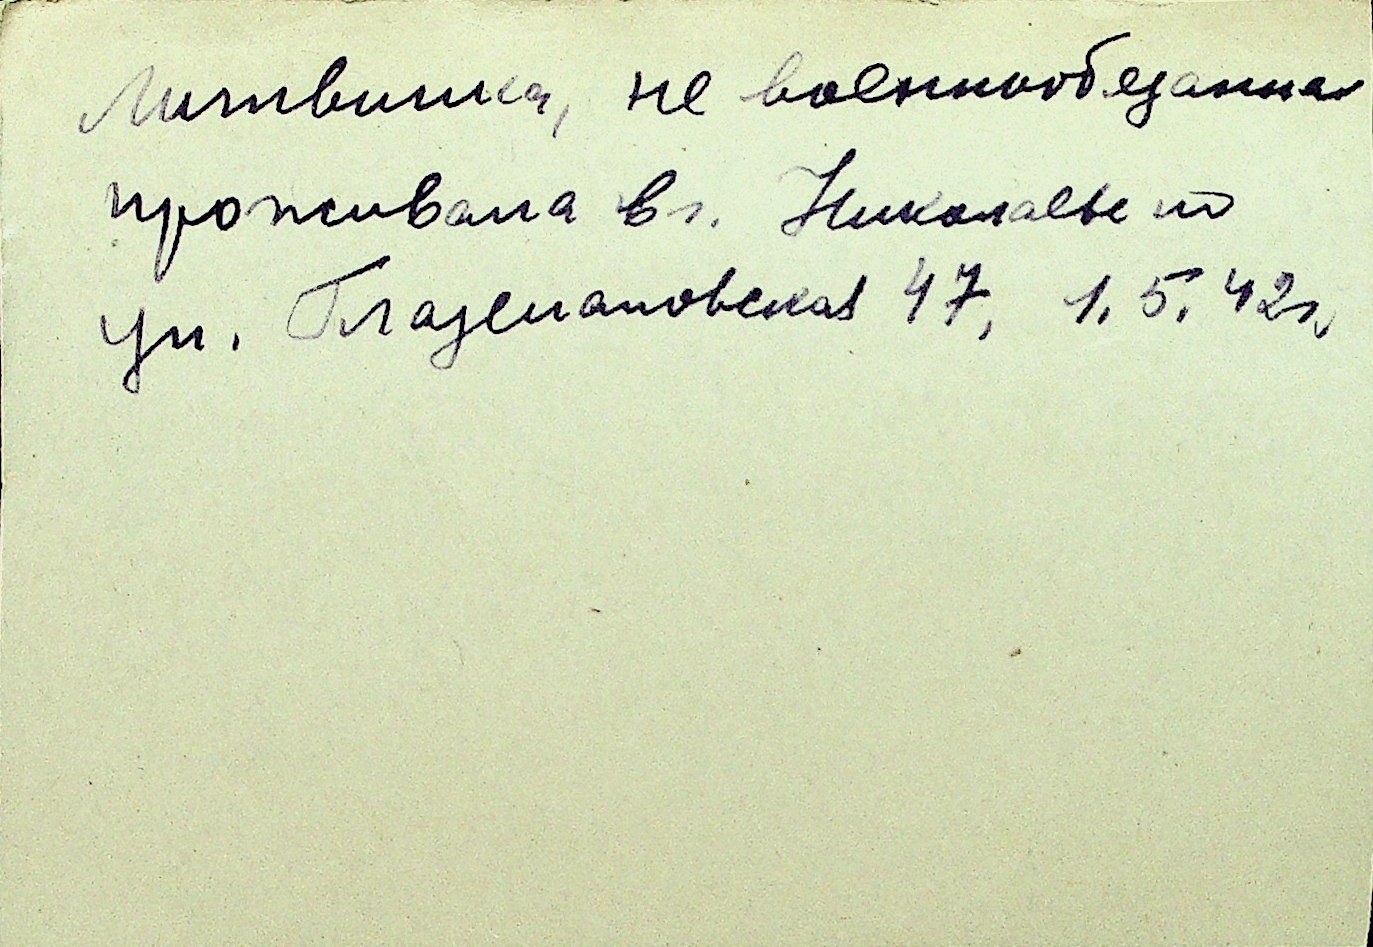 Литвинка, не военнообязанная
проживала в г. Николаеве по
ул. Глазенаповская 47, 1.5.42г.